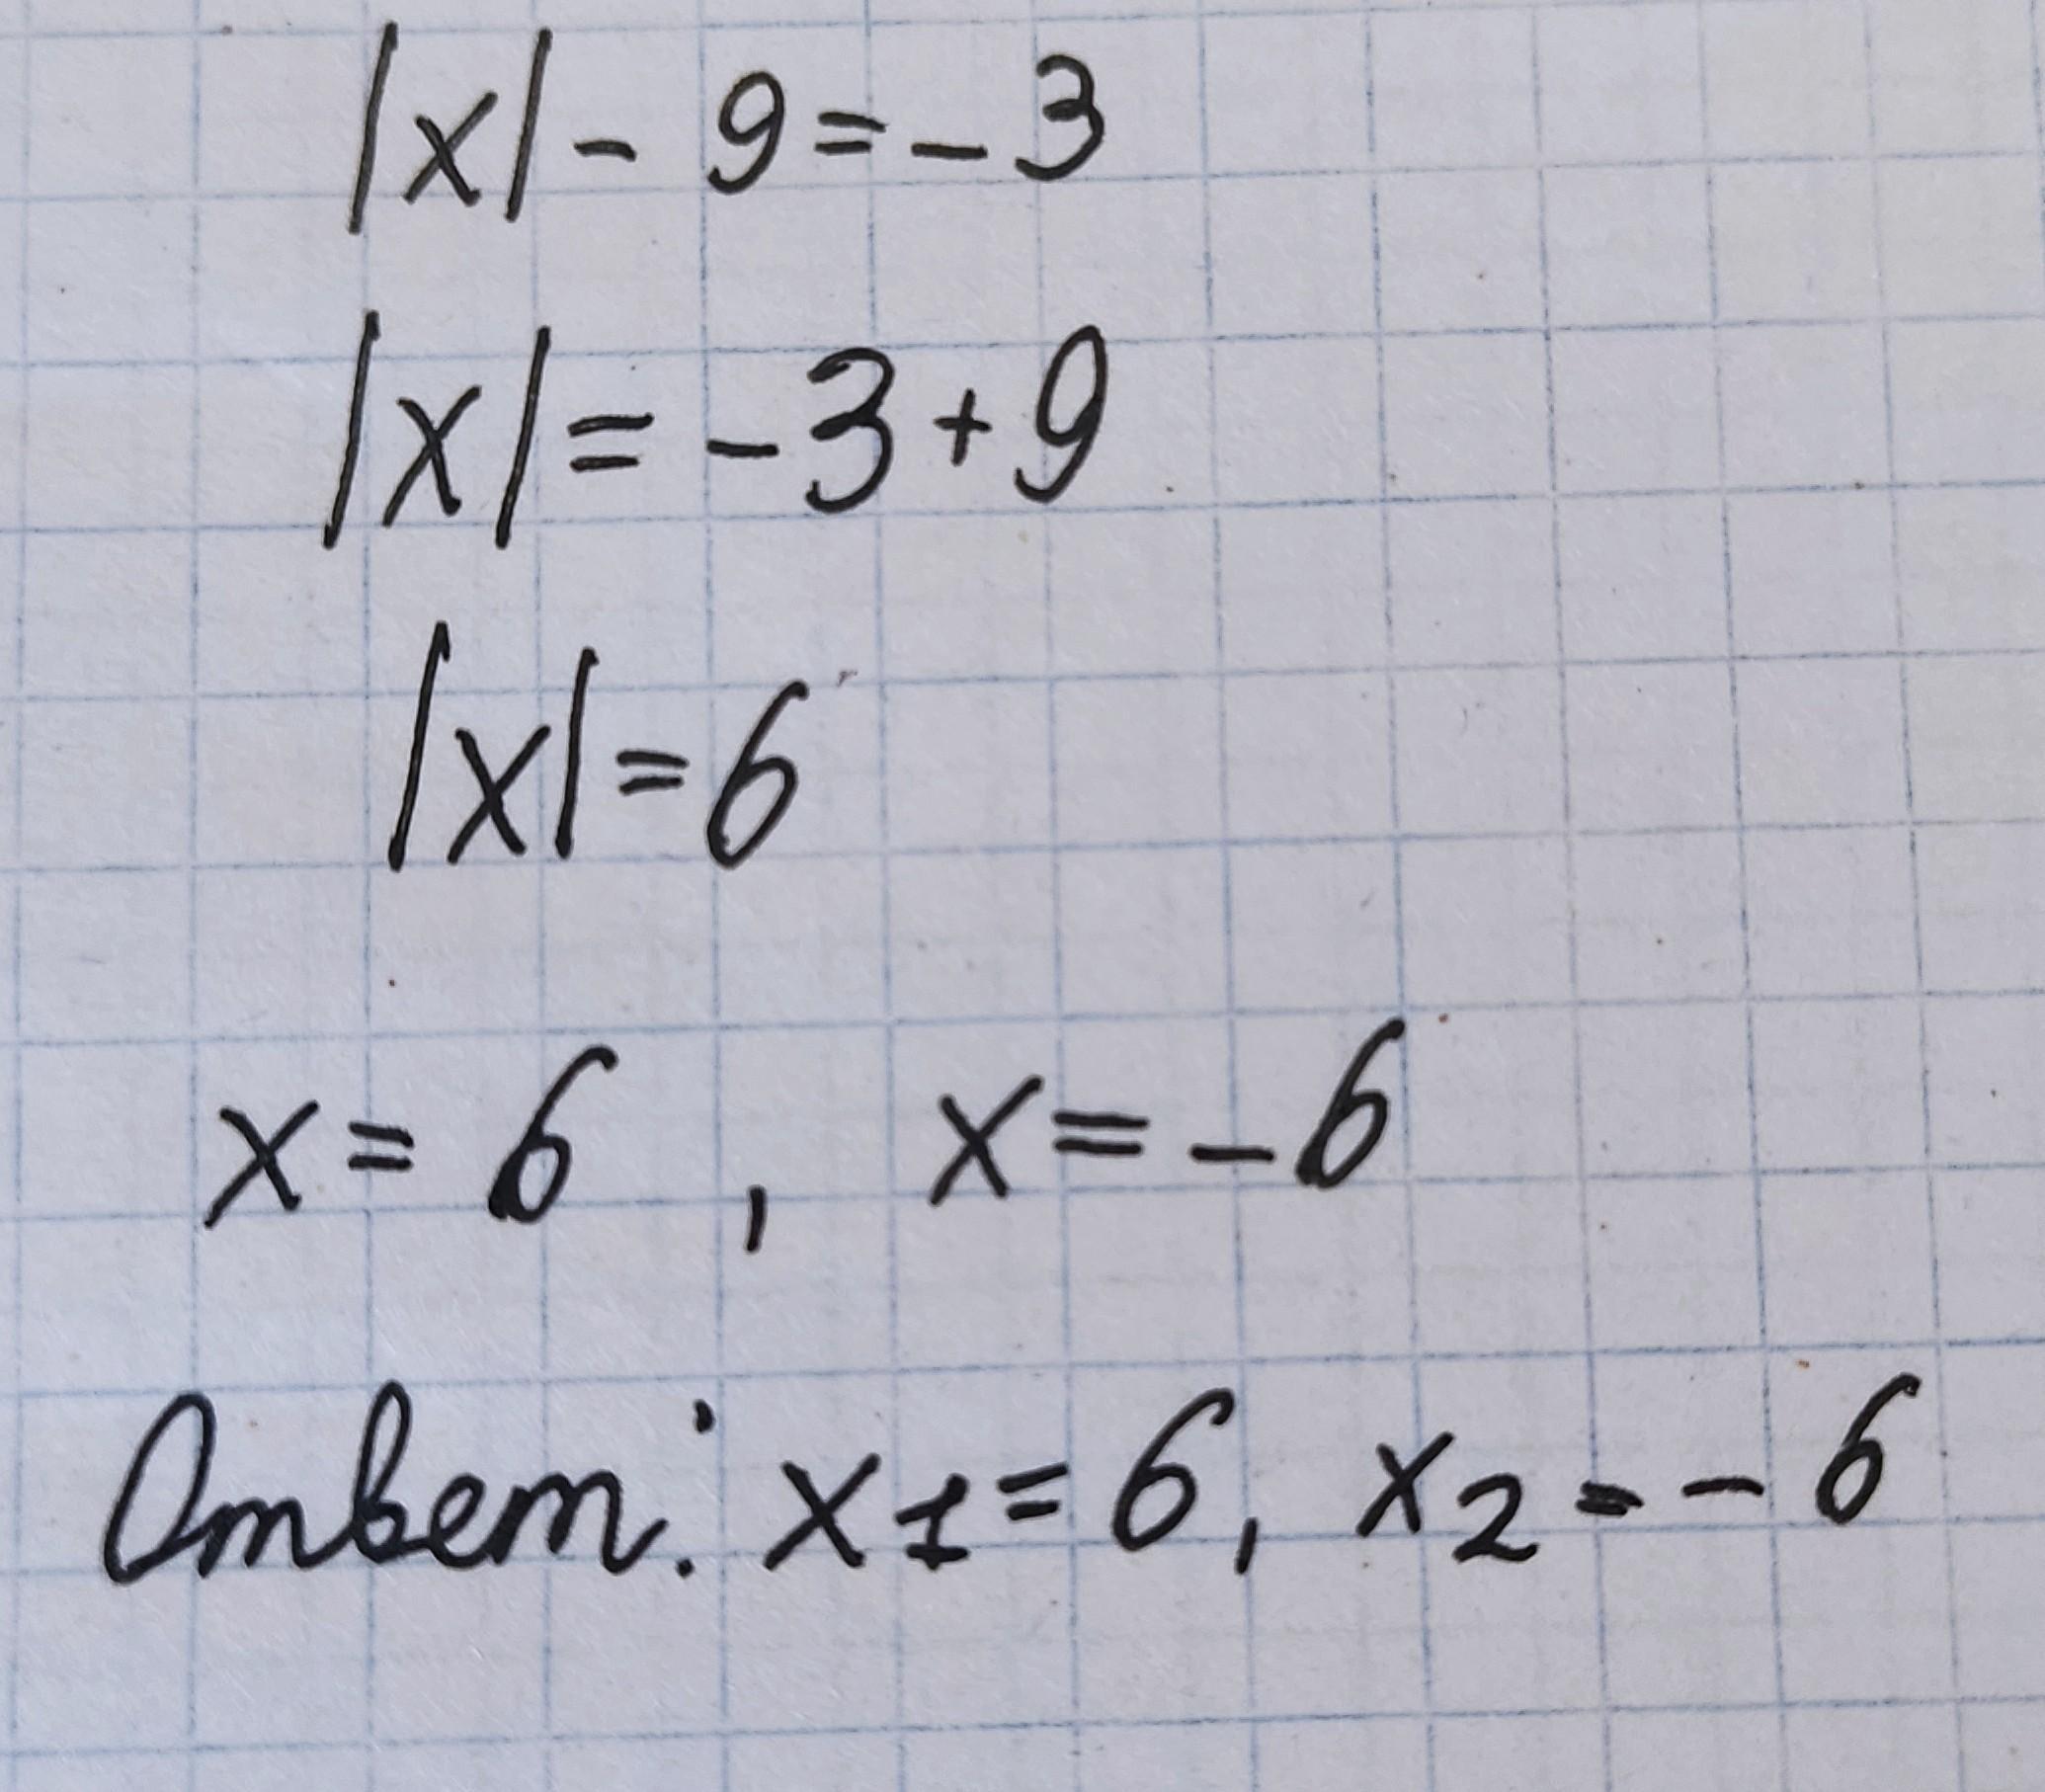 |x| - 9 = - 3
|x| = - 3 + 9
|x| = 6
x = 6 , x = - 6
Ответ: x1 = 6, x2 = - 6